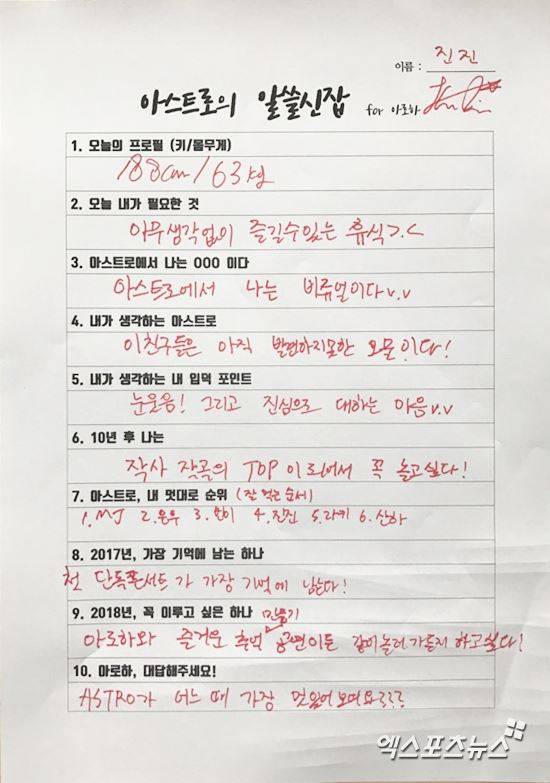 이름 : 진진
아스트로의 알쓸신잡 for 아로하
1. 오늘의 프로필 (키/몸무게)
188cm / 63kg
2. 오늘 내가 필요한 것
아무생각없이 즐길수있는 휴식>.<
3. 아스트로에서 나는 OOO 이다
아스트로에서 나는 비쥬얼이다v.v
4. 내가 생각하는 아스트로
이친구들은 아직 발견하지못한 보물이다!
5. 내가 생각하는 내 입덕 포인트
눈웃음! 그리고 진심으로 대하는 마음v.v
6. 10년 후 나는
작사 작곡의 TOP이 되어서 꼭 놀고싶다!
7. 아스트로, 내 멋대로 순위 (잘 먹는 순서)
1.MJ 2.은우 3.빈이 4.진진 5.라키 6.산하
8. 2017년, 가장 기억에 남는 하나
첫 단독콘서트가 가장 기억에 남는다!
9. 2018년, 꼭 이루고 싶은 하나 만들기
아로하와 즐거운 추억 공연이든 같이놀러가든지 하고싶다!
10. 아로하, 대답해주세요!
ASTRO가 어느 때 가장 멋있어보여요???
엑스포츠뉴스